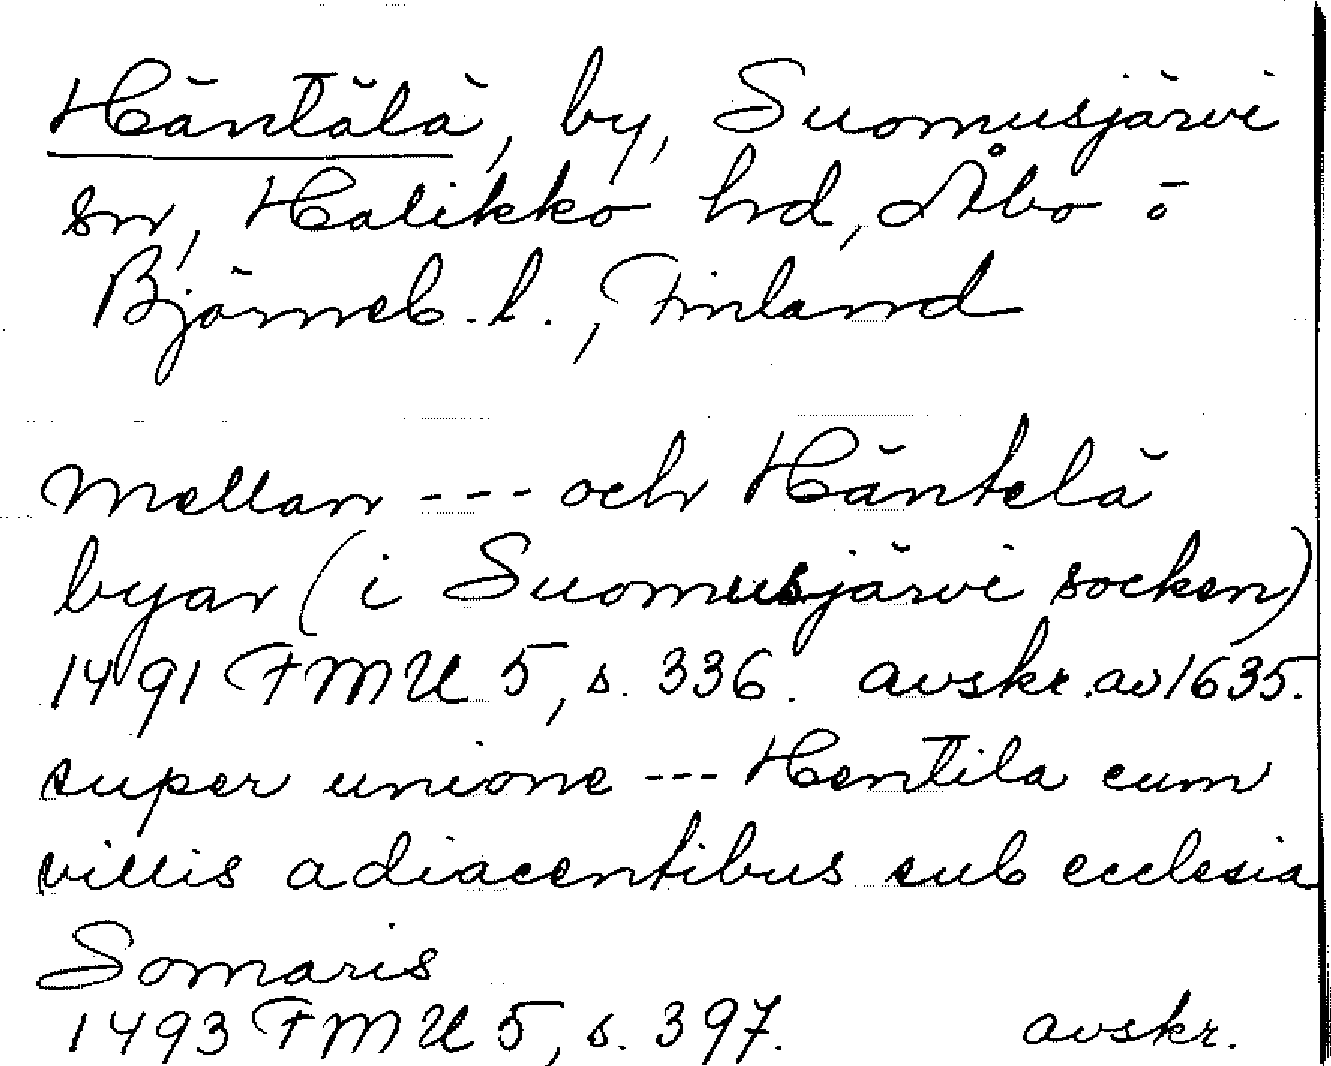 Häntälä, by, Suomusjärvi
sn, Halikko hrd, Åbo o
Björneb. l., Finland
Mellan --- och Häntelä
byar (i Suomusjärvi socken)
1491 FMU 5, s. 336. avskr. av 1635.
super unione --- Hentila cum
villis adiacentibus sub ecclesia
Somaris
1493 FMU 5, s. 397. avskr.